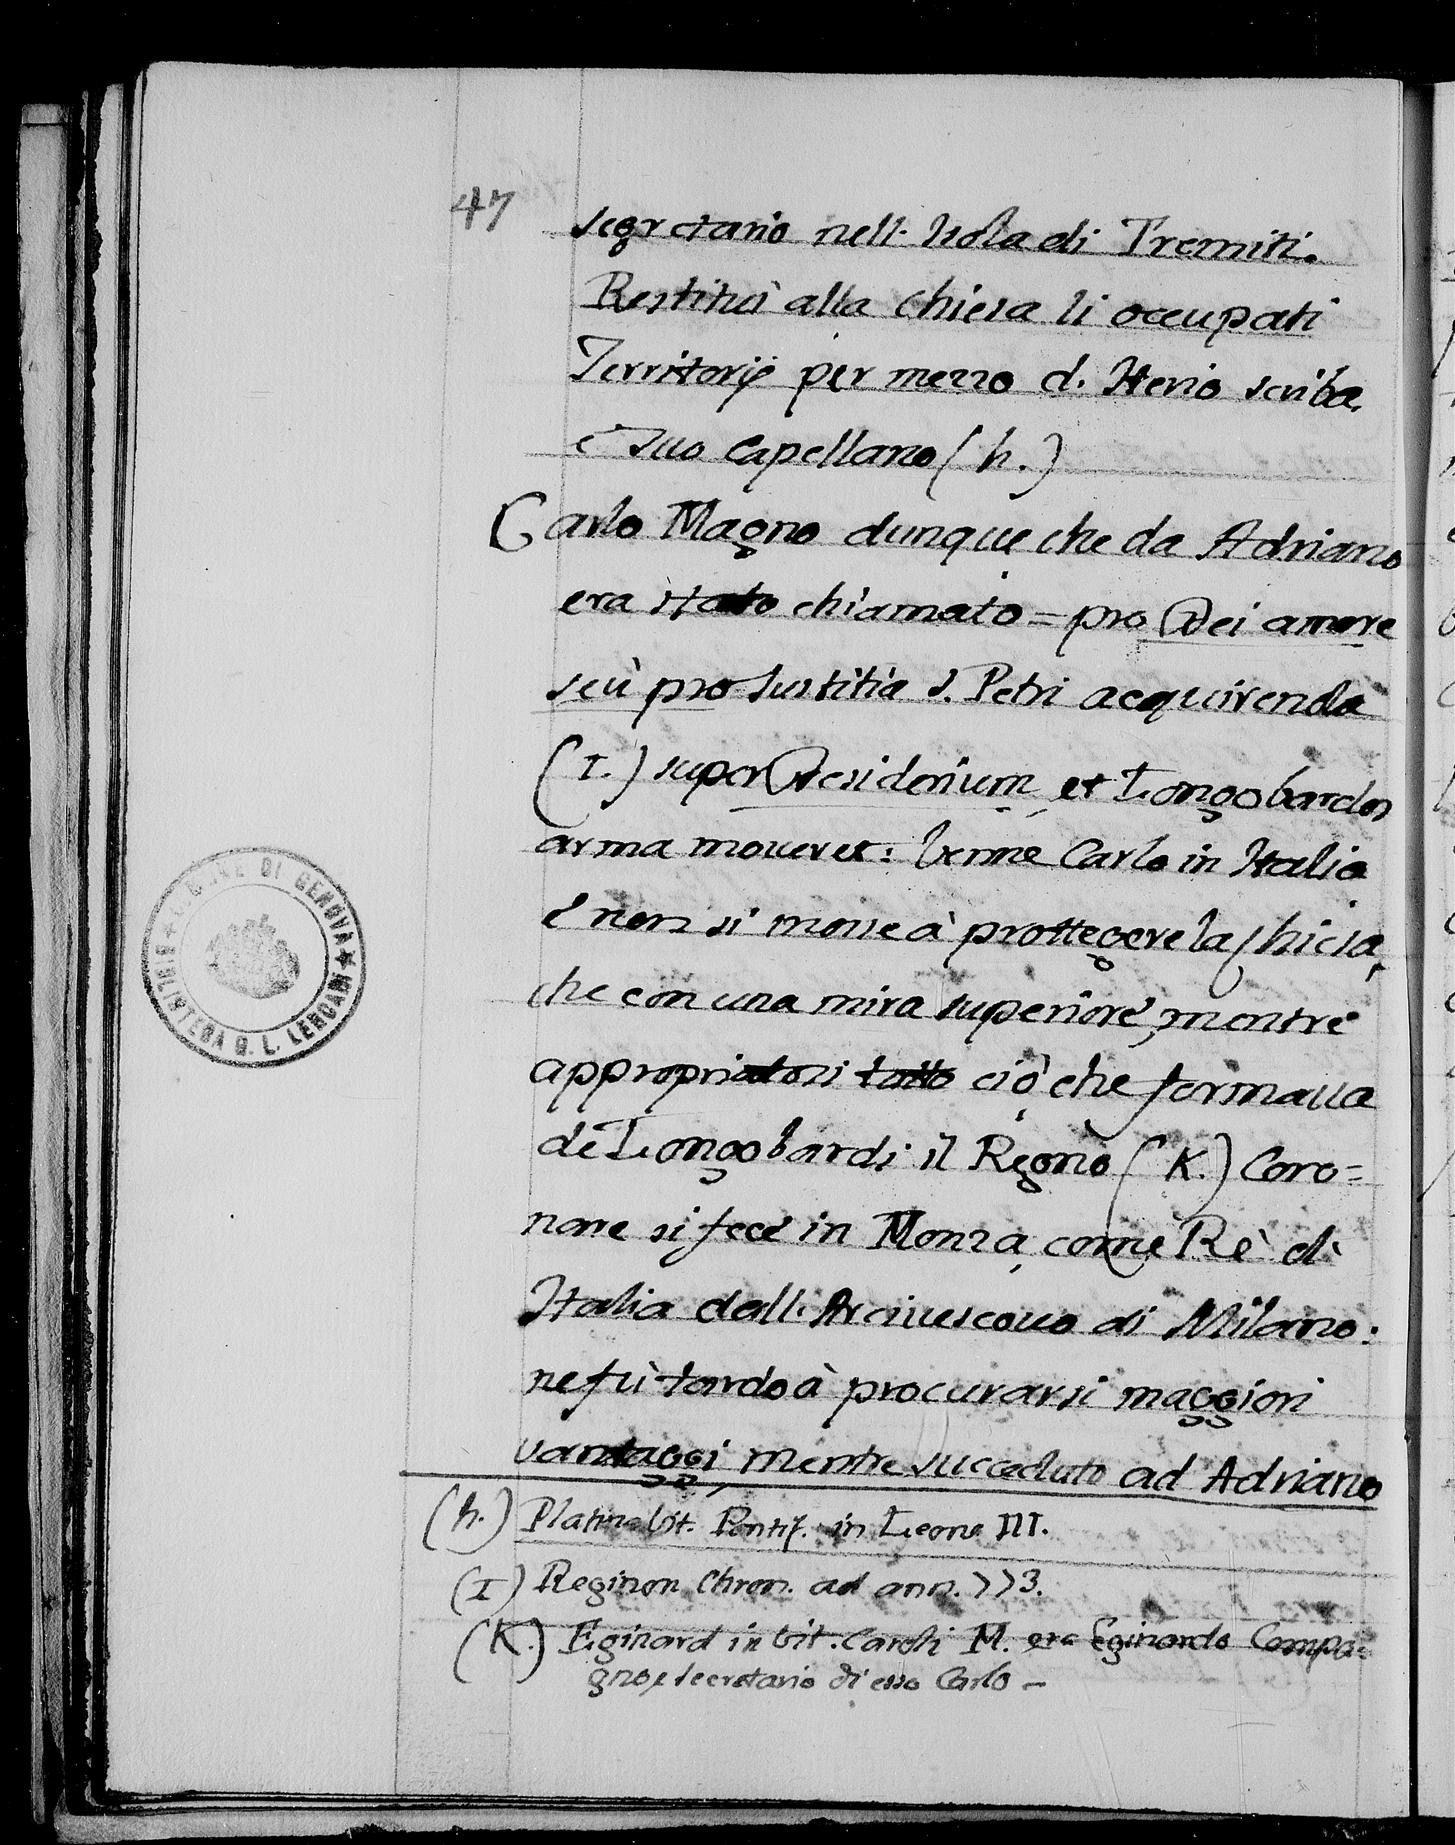 47
segretario nell. Isola di Tremiti.
Restituì alla chiesa li occupati
Territorij per mezzo d. Iterio scriba,
e suo Capellano (h.)
Carlo Magno dunque che da Adriano
era stato chiamato = pro Dei amore
seù pro Iustitia S. Petri acquirenda
(I.) super Desiderium, et Longobardos
arma moveret: venne Carlo in Italia
e non si mosse à prottegere la Chiesa,
che con una mira superiore, mentre
appropriatosi tutto ciò che formaua
de Longobardi il Regno (K.) Coro=
nare si fece in Monza, come Rè di
Italia dall. Arciuescouo di Milano:
ne fù tardo à procurarsi maggiori
vantaggi, mentre succeduto ad Adriano
(h.) Platina Vit. Pontif. in Leone III.
(I) Reginon Chron. ad ann. 773.
(K.) Eginard in Vit. Caroli M. era Eginardo Compa=
gno, e secretario di esso Carlo –
COMUNE DI GENOVA
BIBLIOTECA G. L. LERCARI